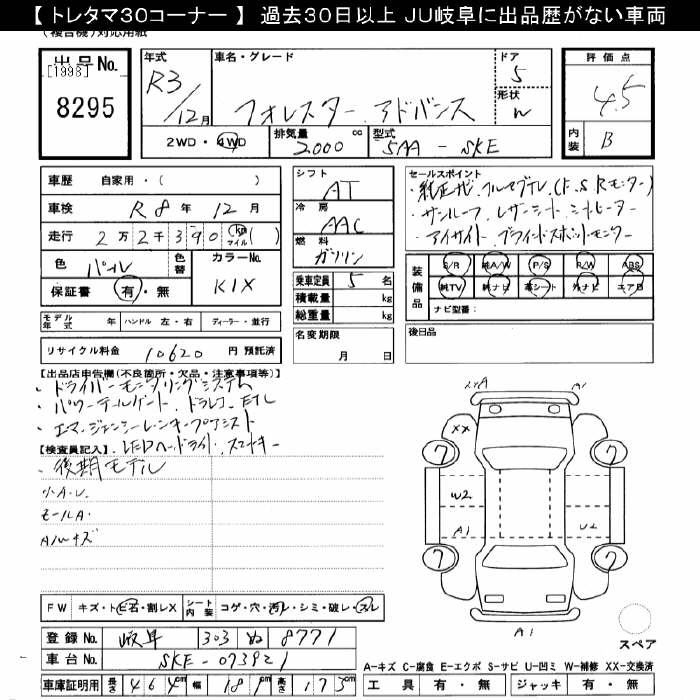 【 トレタマ30コーナー 】 過去30日以上 JU岐阜に出品歴がない車両
(複合機)対応用紙
出品No.
[1998]
8295
年式
R3/12月
車名・グレード
フォレスター アドバンス
ドア
5
形状
W
評価点
4.5
内装
B
2WD・4WD
排気量
2000 cc
型式
5AA - SKE
車歴 自家用・( )
車検 R8年12月
走行 2万2千390 (km マイル)( )
色 パール 色替 カラーNo. K1X
保証書 有・無
モデル年式 年 ハンドル 左・右 ディーラー・並行
リサイクル料金 10620 円 預託済
シフト
AT
冷房
AAC
燃料
ガソリン
乗車定員 5 名
積載量 kg
総重量 kg
名変期限
月 日
セールスポイント
・純正ナビ、フルセグTV、(F.S.Rモニター)
・サンルーフ、レザーシート、シートヒーター
・アイサイト、ブラインドスポットモニター
装備品
S/R 純A/W P/S P/W ABS
純TV 純ナビ 革シート 外ナビ エアB
ナビ型番:
後日品
【出品店申告欄(不良箇所・欠品・注意事項等)】
・ドライバーモニタリングシステム
・パワーテールゲート、ドラレコ、ETC
・エマージェンシーレーンキープアシスト
【検査員記入】・LEDヘッドライト、スマートキー
・後期モデル
小A.U.
モールA.
Aルーキズ
XX
A1
7
7
W2
A1
U2
7
7
A1
スペア
FW キズ・トビ石・割レX シート内装 コゲ・穴・汚レ・シミ・破レ・スレ
登録No. 岐阜 303 ぬ 8771
車台No. SKE-073921
車庫証明用 長さ 464cm 幅 181cm 高さ 173cm
A-キズ C-腐食 E-エクボ S-サビ U-凹ミ W-補修 XX-交換済
工具 有・無 ジャッキ 有・無